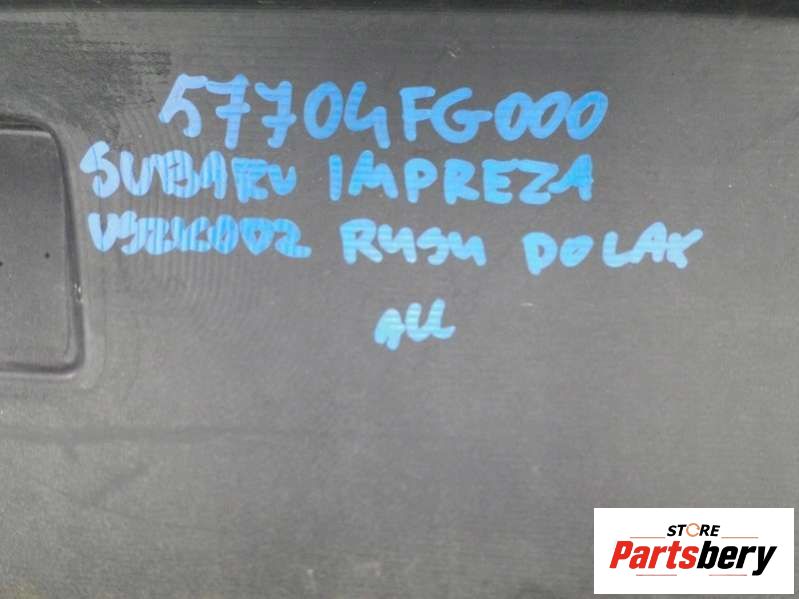 57704FG000
SUBARU IMPREZA
RUSU DOLAX
ALL
STORE
Partsbery